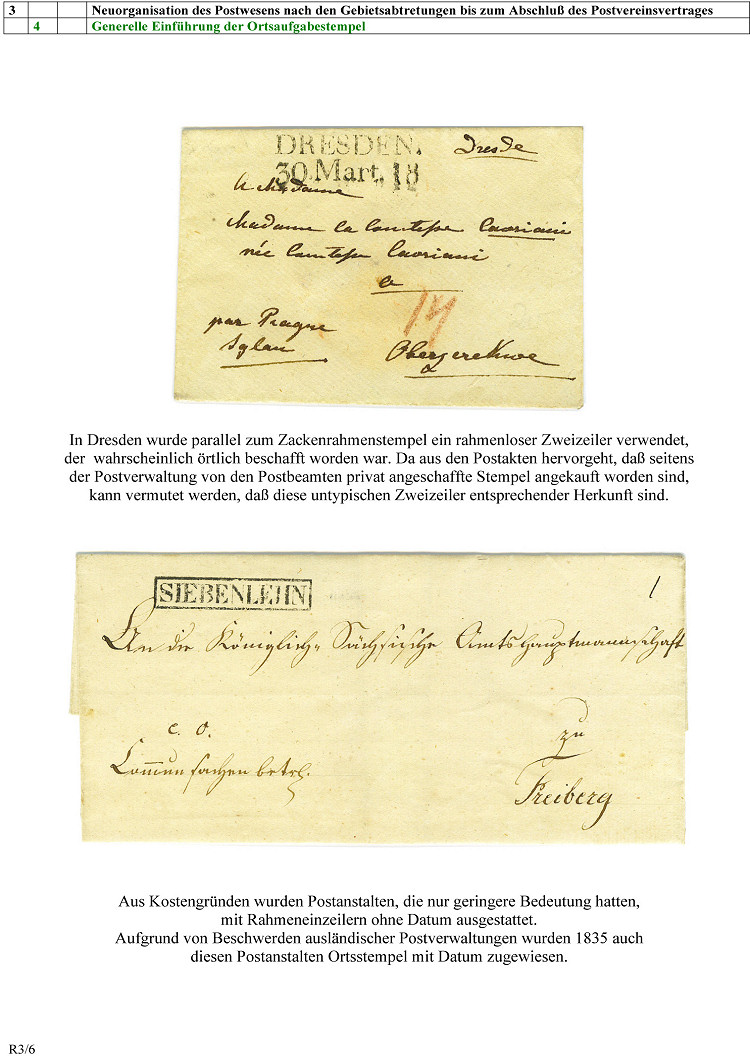 3 Neuorganisation des Postwesens nach den Gebietsabtretungen bis zum Abschluß des Postvereinsvertrages
4 Generelle Einführung der Ortsaufgabestempel
DRESDEN.
Dresde
30. Mart. 18
A Madame
Madame la Comtesse Cavriani
née Comtesse Cavriani
a
par Prague
Iglau
Oberzerekwe
In Dresden wurde parallel zum Zackenrahmenstempel ein rahmenloser Zweizeiler verwendet,
der wahrscheinlich örtlich beschafft worden war. Da aus den Postakten hervorgeht, daß seitens
der Postverwaltung von den Postbeamten privat angeschaffte Stempel angekauft worden sind,
kann vermutet werden, daß diese untypischen Zweizeiler entsprechender Herkunft sind.
SIEBENLEHN
1
An die Königlich Sächsische Amtshauptmannschaft
c. o.
zu
Communsachen betrf.
Freiberg
Aus Kostengründen wurden Postanstalten, die nur geringere Bedeutung hatten,
mit Rahmeneinzeilern ohne Datum ausgestattet.
Aufgrund von Beschwerden ausländischer Postverwaltungen wurden 1835 auch
diesen Postanstalten Ortsstempel mit Datum zugewiesen.
R3/6